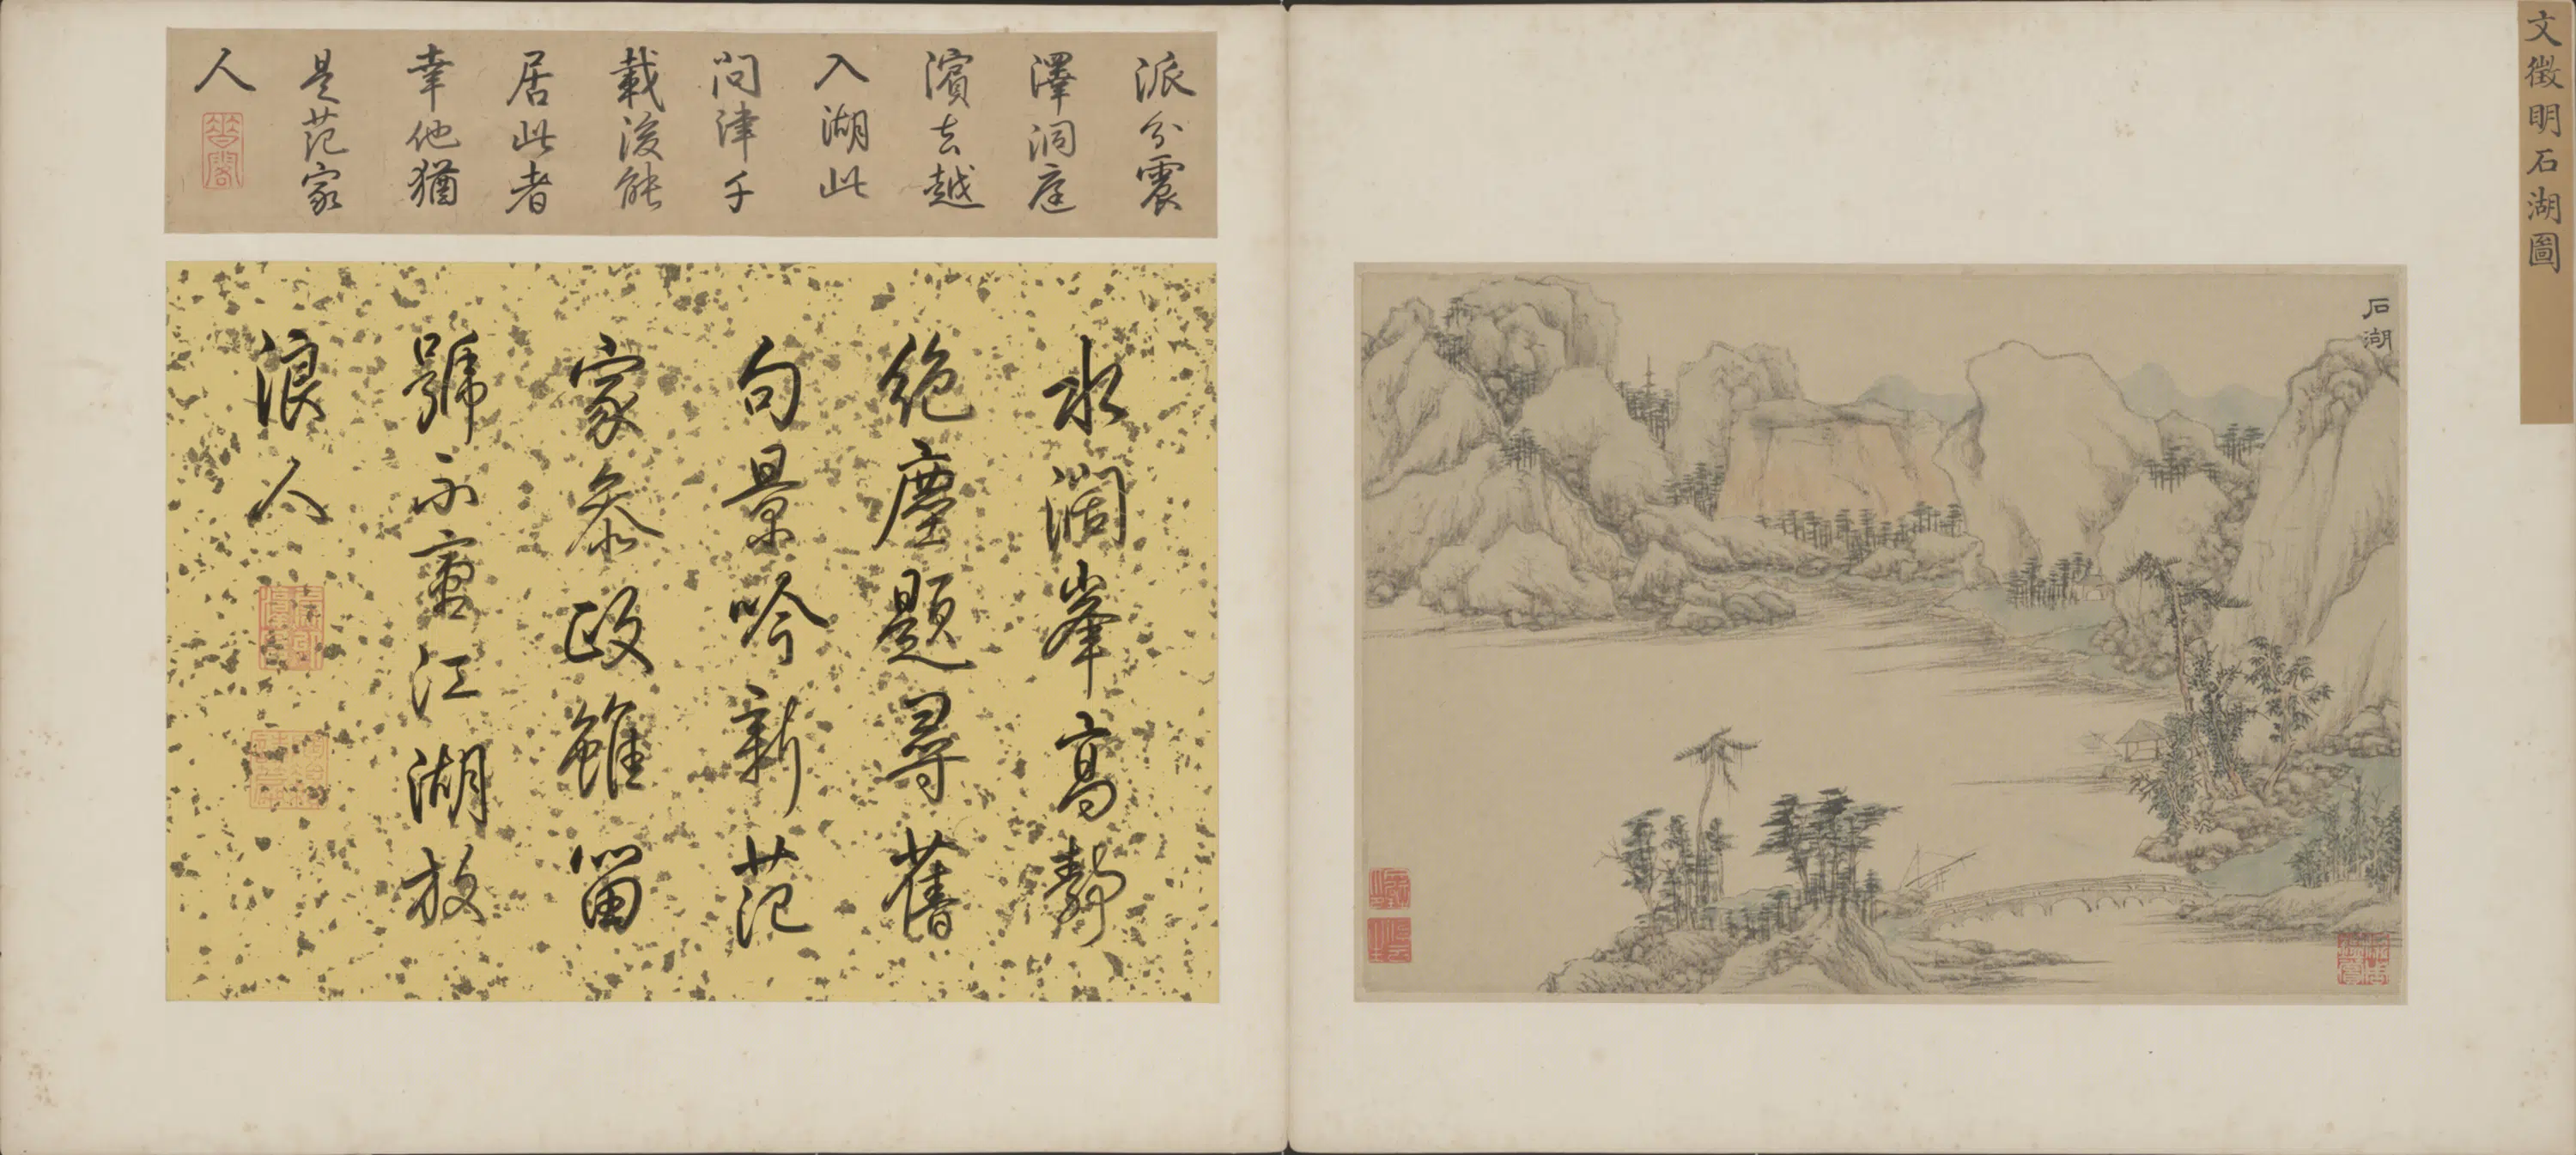 文徵明石湖圖
石湖
派分震
澤洞庭
濱去越
入湖此
問津千
載後能
居此者
幸他猶
是范家
人
水濶峯高靜
絶塵題尋舊
句景吟新范
家叅政雖留
號不壹江湖放
浪人